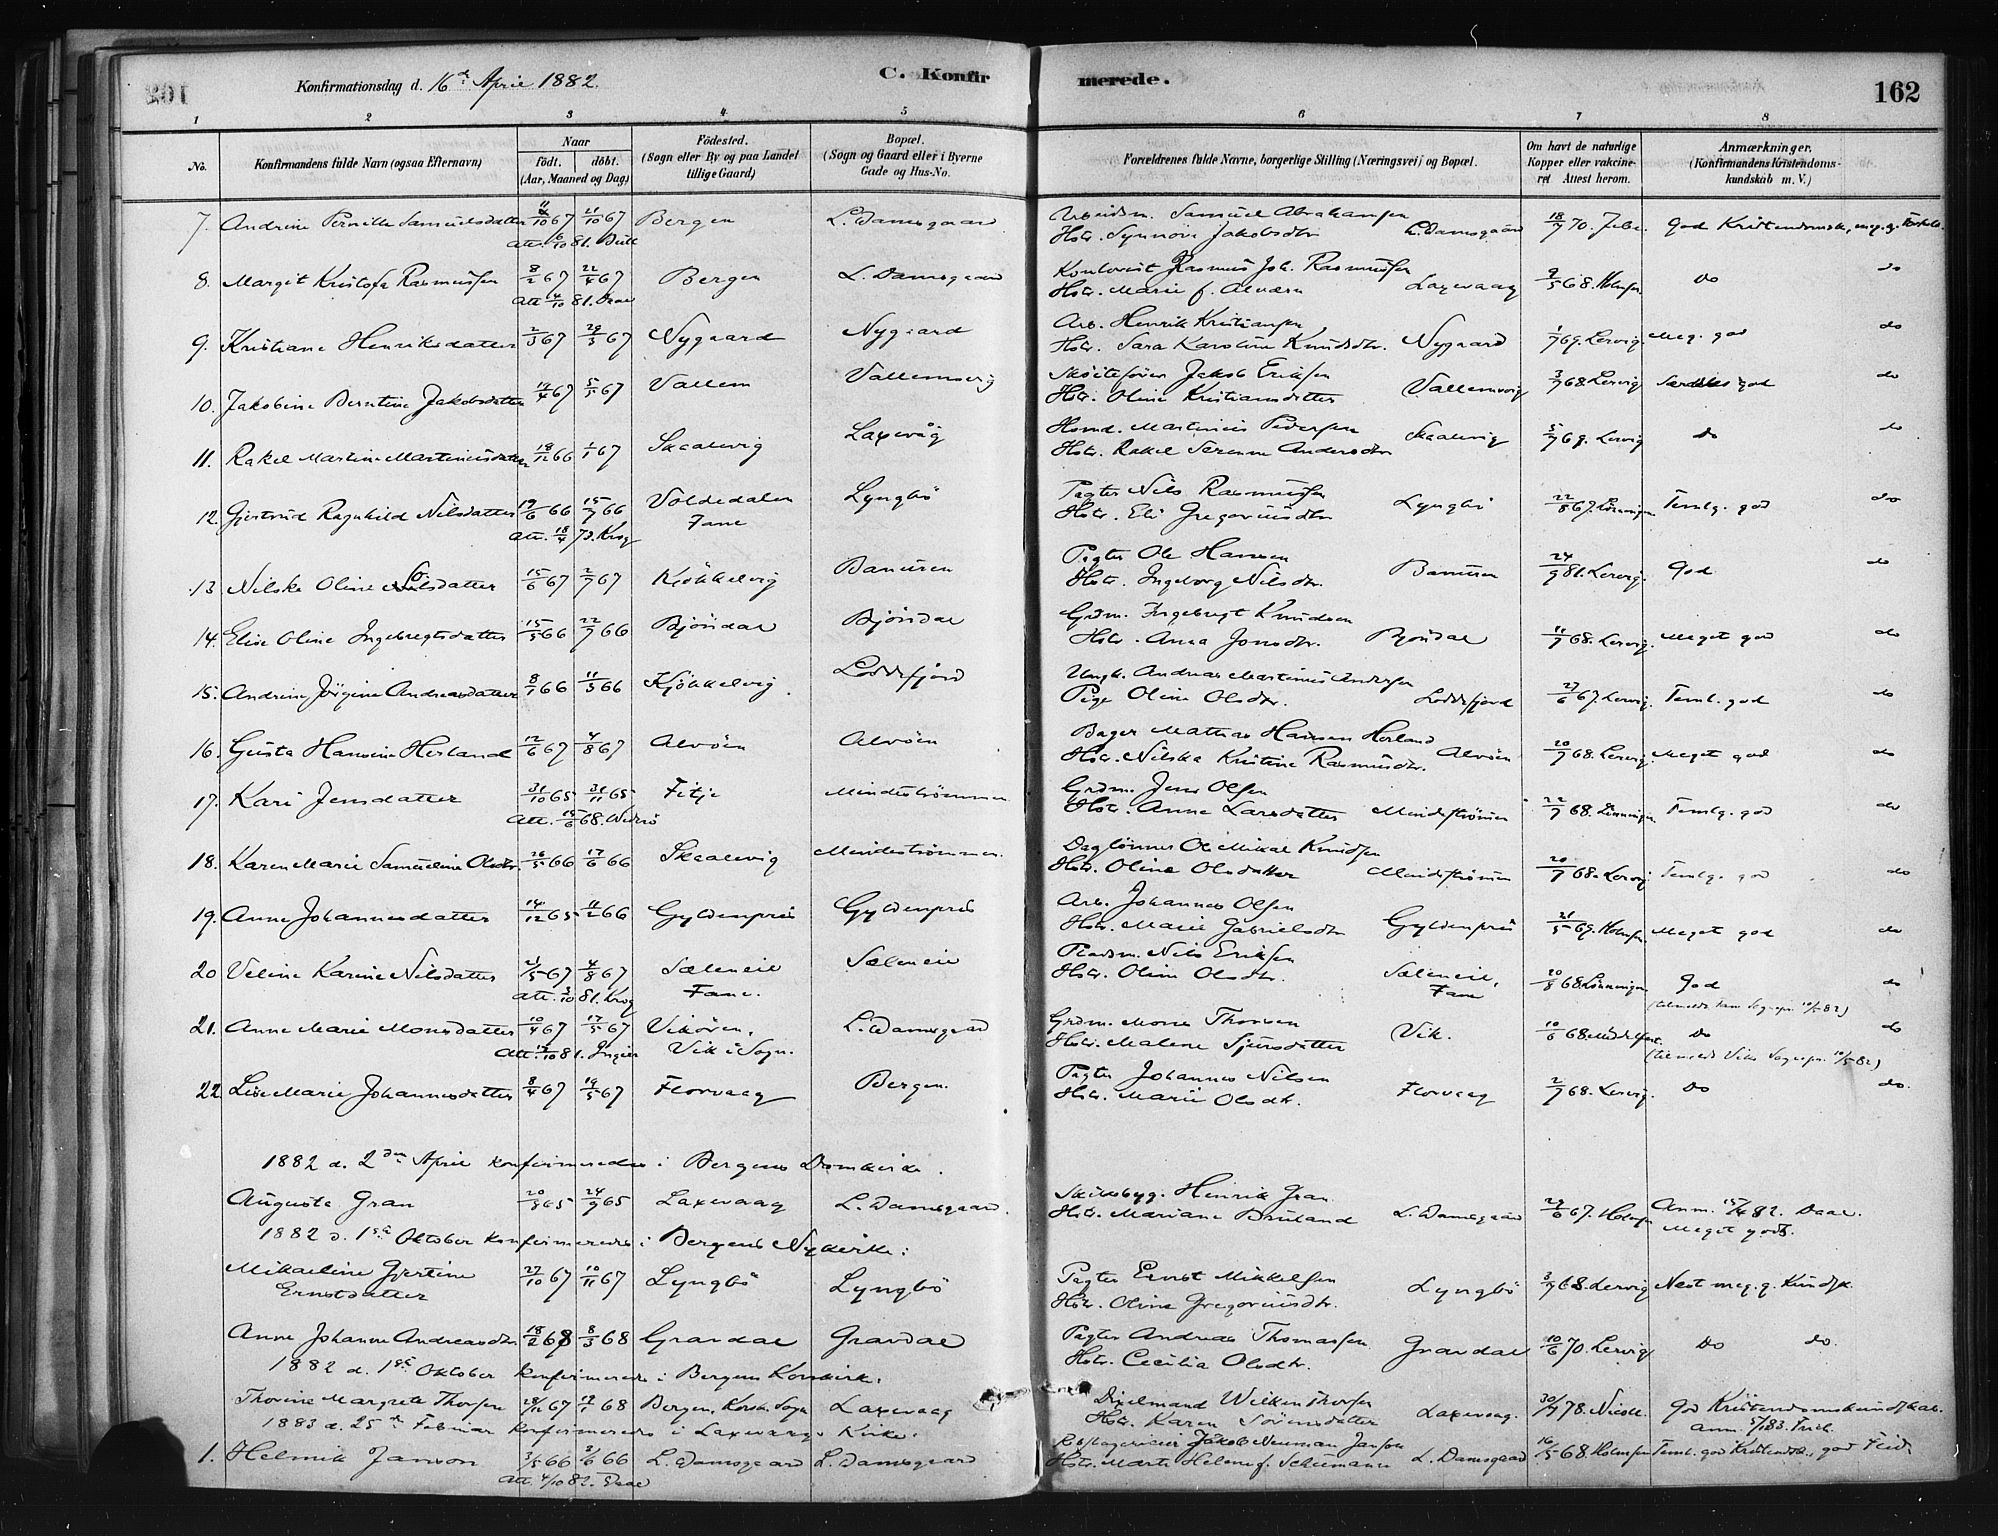 Konfirmationsdag d. 16de April 1882. C. Konfirmerede. 162
1 2 3 4 5 6 7 8
No. Konfirmandens fulde Navn (ogsaa Efternavn) Naar født. døbt. (Aar, Maaned og Dag) Födested. (Sogn eller By og paa Landet tillige Gaard) Bopæl. (Sogn og Gaard eller i Byerne Gade og Hus-No. Forældrenes fulde Navne, borgerlige Stilling (Næringsvei) og Bopæl. Om havt de naturlige Kopper eller vakcineret Attest herom. Anmærkninger, (Konfirmandens Kristendomskundskab m. V.)
7. Andrine Pernille Samuelsdatter 67 21/10 67 Bergen L. Damsgaard Arbeidsm. Samuel Abrahamsen L. Damsgaard 18/9 70. God Kristendomsk.,
Att. 6/10 81. Hstr. Synnøve Jakobsdtr.
8. Margit Kristofa Rasmussen 8/2 67 22/4 67 Bergen L. Damsgaard Rasmus Joh. Rasmussen Laxevaag 9/5 68. Holmsen Do do
Att. 4/10 81. Daae Hstr. Marie f.
9. Kristiane Henriksdatter 2/3 67 29/3 67 Nygaard Nygaard Arb. Henrik Kristiansen
Hstr. Sara Karoline Knudsdtr. Nygaard 1/7 69. Lervig. Meg. god do
10. Jakobine Berntine Jakobsdatter 14/4 67 5/5 67 Vallem Vallemsvig Skøitefører Jakob Eriksen Vallemsvig 3/7 68. Lervig Særdeles god do
Hstr. Oline Kristiansdatter
11. Rakel Martine Martinusdatter 18/12 66 1/1 67 Skaalevig Laxevåg Husmd. Martinus Pedersen Skaalevig 5/7 69. Lervig Do do
Hstr. Rakel Serene Andersdtr
12. Gjertrud Ragnhild Nilsdatter 19/6 66 15/7 66 Voldedalen Lyngbö Pagter Nils Rasmussen Lyngbö 22/8 67. Lönningen Temlg. god do
Att. 18/4 73. Krog Fane Hstr. Eli Gregoriusdtr
13 Nilske Oline Olsdatter 15/6 67 2/7 67 Kjökkelvig Banuren Pagter Ole Hansen Banuren 24/9 81. Lervig. God do
Hstr. Ingeborg Nilsdtr.
14. Elise Oline Ingebregtsdatter 15/5 66 22/7 66 Bjöndal Bjöndal Grdm. Ingebregt Knudsen
Hstr. Anna Jonsdtr. Bjöndal 11/7 68. Lervig. Meget god do
15. Andrine Jörgine Andreasdatter 8/1 66 11/3 66 Kjökkelvig. Loddefjord Ungk. Andreas Martinus Andersen
Pige Oline Olsdtr. Loddefjord 27/6 67. Lervig. Temlg. god do
16. Gusta Hansine Herland 12/6 67 4/8 67 Alvöen Alvöen Bager Mathias Hansen Herland
Hstr. Nilska Kristine Rasmusdtr. Alvöen 20/7 68. Lervig. Meget god do
17. Kari Jensdatter 31/10 65 31/11 65 Fitje Mindeströmmen Grdm. Jens Olsen
Att. 68. Hstr. Anne Larsdatter Mindeströmmen 22/7 68. Lönningen Temlg. god do
18. Karen Marie Samueline Olsdtr. 26/5 66 17/6 66 Skaalevig Mindeströmmen Daglönner Ole Mikal Knudsen
Hstr. Oline Olsdatter Mindeströmmen 20/7 68. Lervig Temlg. god do
19. Anne Johannesdatter 14/12 65 11/2 66 Gyldenpris Gyldenpris Arb. Johannes Olsen
Hstr. Marie Gabrielsdtr Gyldenpris 21/5 69. Holmsen. Meget god do
20 Veline Karine Nilsdatter 21/5 67 4/8 67 Sæleneie Sæleneie Pladsm. Nils Eriksen
Att. 3/10 81. Krog Fane. Hstr. Oline Olsdtr. Sæleneie, Fane 20/8 68. Lönningen God do
21. Anne Marie Monsdatter 10/4 67 17/5 67 Vikören, L. Damsgaard Grdm. Mons Thorsen Vik. 10/6 68. Do do
Att. 81. Vik i Sogn. Hstr. Malene Sjursdatter (tilmeldt Viks Sognepr. 10/5 82)
22. Lise Marie Johannesdatter 8/4 67 19/5 67 Florvaag Bergen. Pagter Johannes Nilsen Florvaag 2/7 68. Lervig. Do do.
Hstr. Marie Olsdtr.
1882 d. 2den April konfirmeredes i Bergens Domkirke.
Auguste Gran 20/3 65 24/9 65 Laxevaag L. Damsgaard. Skibsbyg. Henrik Gran
Hstr. Mariane L. Damsgaard 67. Holmsen Anm. 15/4 82. Daae.
Meget godt.
1882 d. 1ste Oktober konfirmeredes i Bergens Nykirke:
Mikaeline Gjertine 27/10 67 10/11 67 Lyngbö Lyngbö Pagter Ernst Mikkelsen Lyngbö 3/7 68. Lervig Næst meg. g. Kundsk.
Ernstdatter Hstr. Oline Gregoriusdtr.
Anne Johanne Andreasdtr 18/2 68 8/3 68 Gravdal Gravdal Pagter Andreas Thomassen Gravdal 10/6 70. Lervig Do do.
Hstr. Cecilia Olsdtr.
1882 d. 1ste Oktober konfirmeredes i Bergens Korskirke.
Thorine Margrete Thorsen 28/12 67 68 Bergen, Korsk. Sogn Laxevaag Wilken Thorsen Laxevaag. 78. God Kristendomskundskab.
Hstr. Karen Sörensdatter
1883 d. 25de Februar konfirmeredes i Laxevaags Kirke.
1. Helmik Janson 3/5 66 3/6 66 L. Damsgaard L. Damsgaard Jakob Neuman Janson
Att. 4/10 82. Daae Hstr. Marte Helene f. L. Damsgaard 16/5 68 Holmsen Teml. god Kristendsk., god Flid